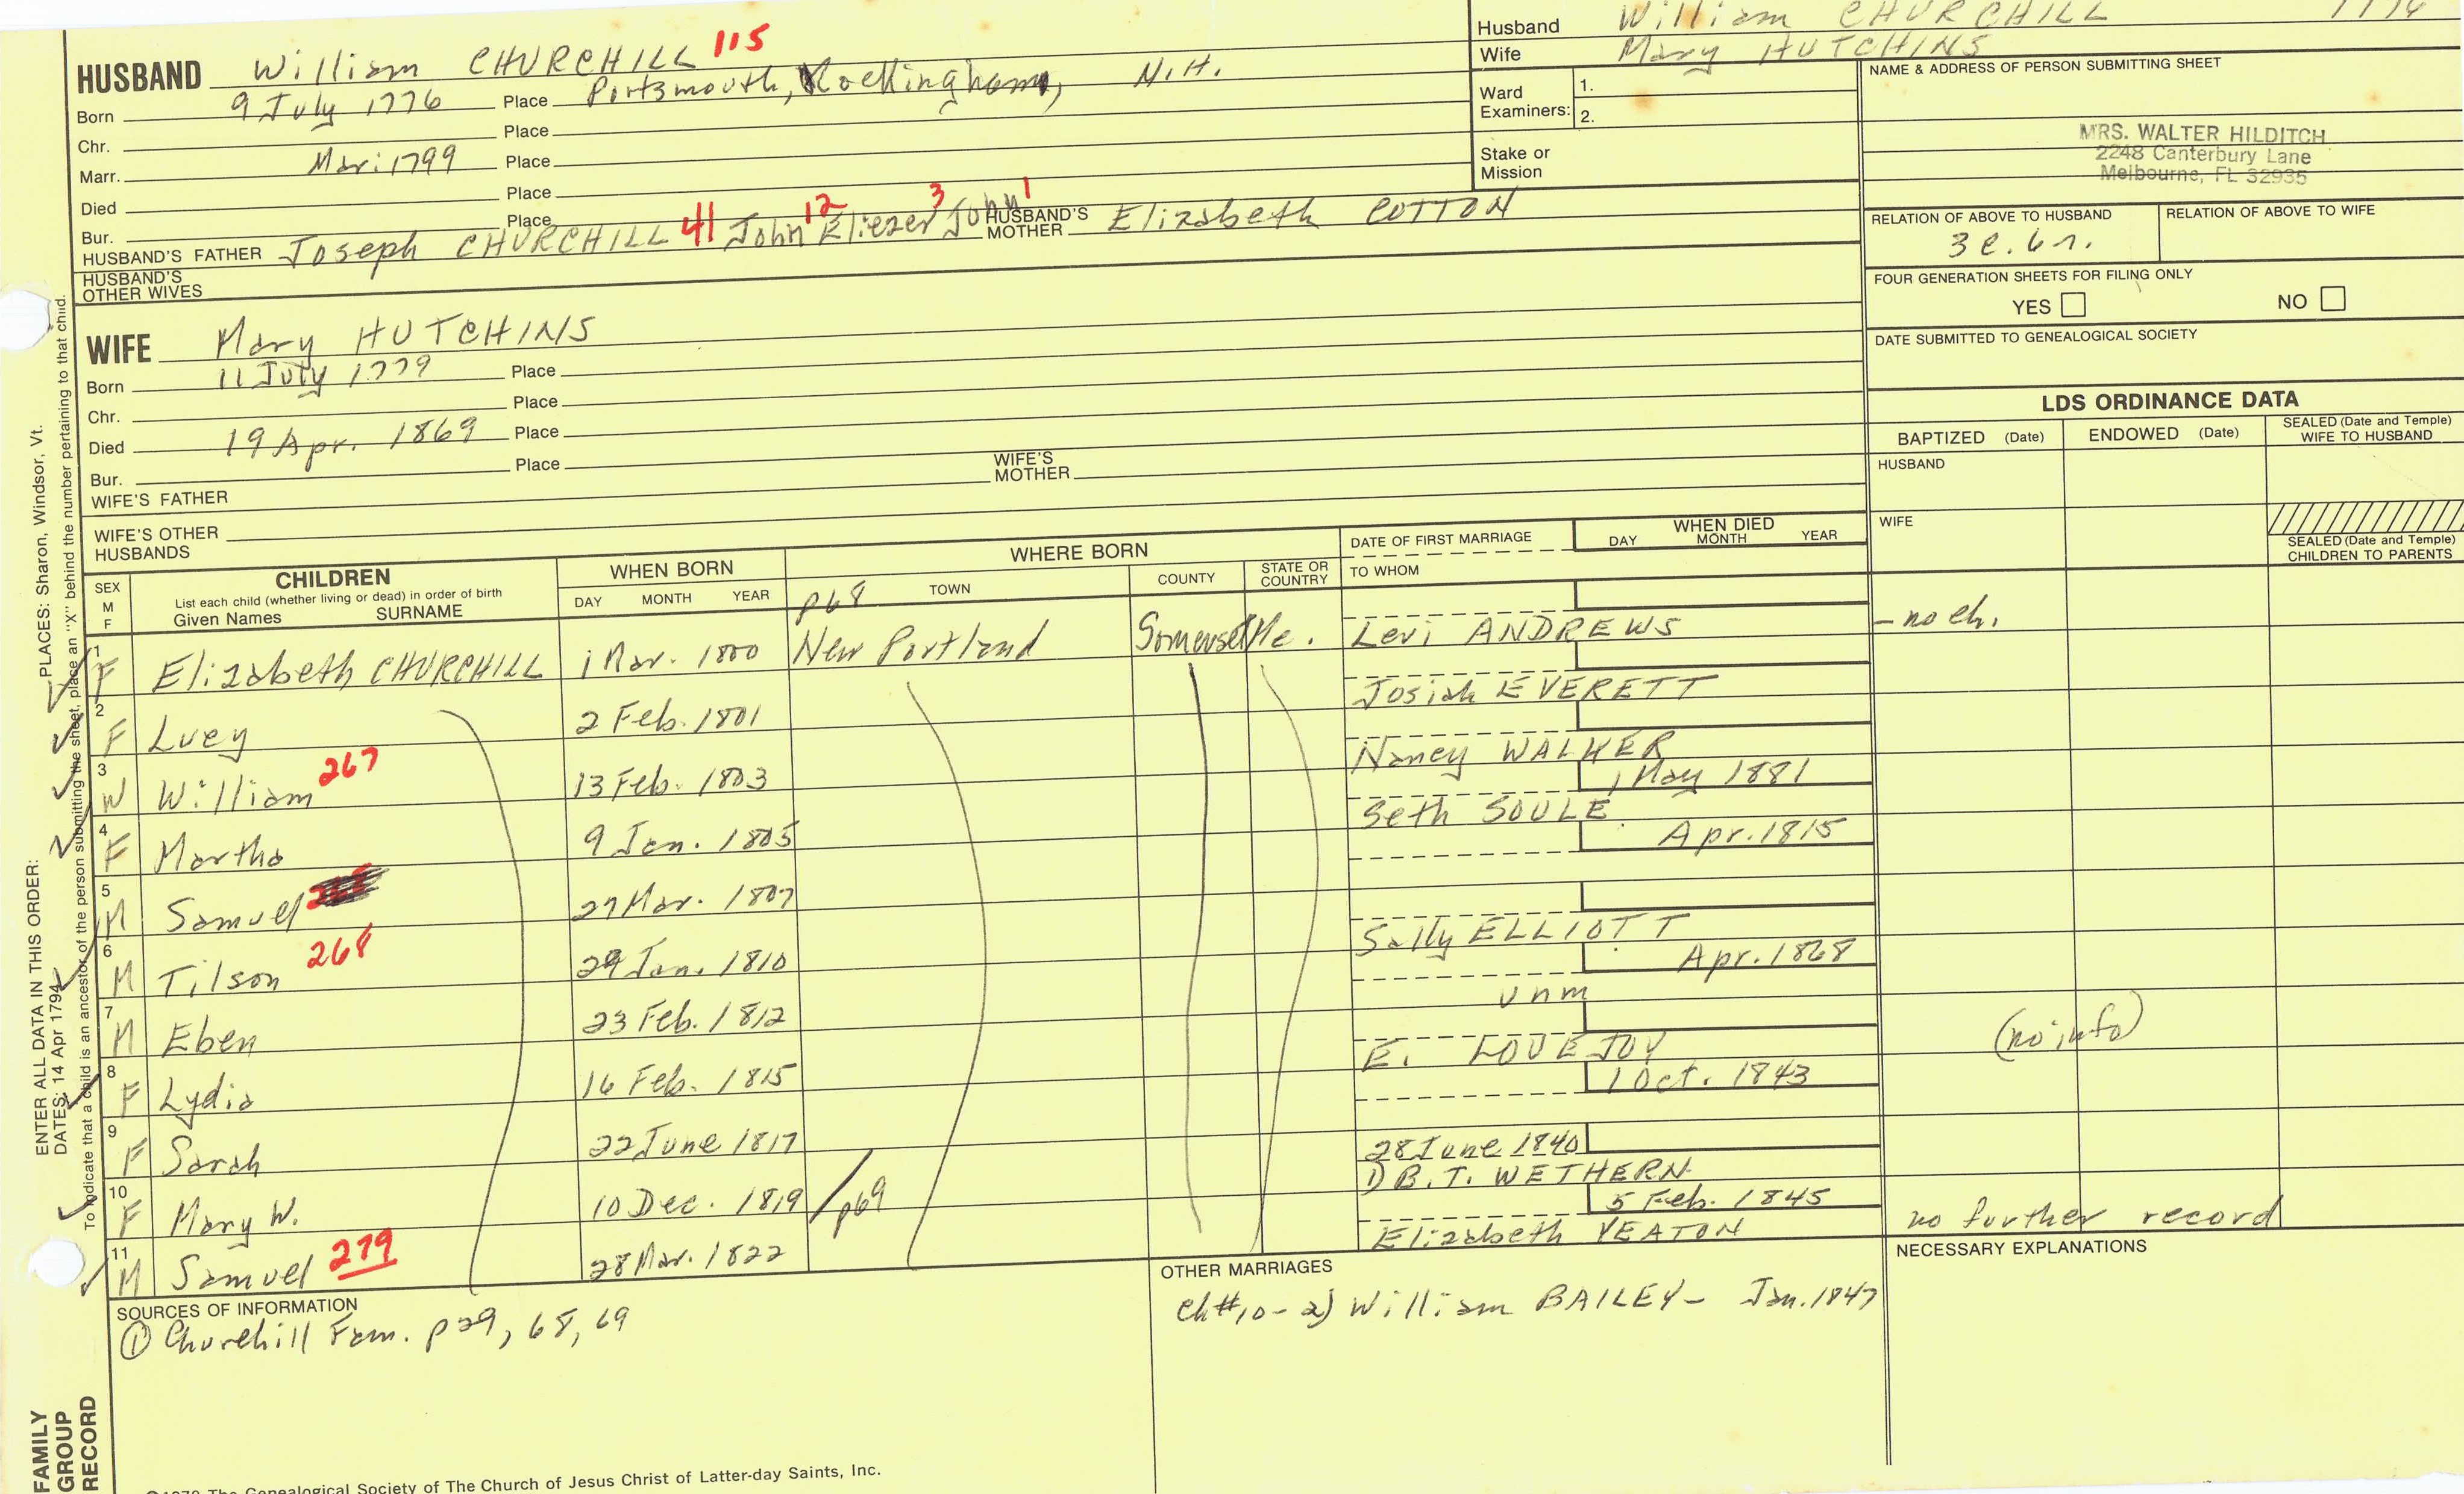 HUSBAND William CHURCHILL 115
Born 9 July 1776 Place Portsmouth, Rockingham, N.H.
Chr. Place
Marr. Mar. 1799 Place
Died Place
Bur. Place
HUSBAND'S FATHER Joseph CHURCHILL 41 John 12 Eliezer 3 John 1 HUSBAND'S MOTHER Elizabeth COTTON
HUSBAND'S OTHER WIVES
Husband William CHURCHILL 1776
Wife Mary HUTCHINS
Ward Examiners: 1.
2.
Stake or Mission
NAME & ADDRESS OF PERSON SUBMITTING SHEET
MRS. WALTER HILDITCH
2248 Canterbury Lane
Melbourne, FL 32935
RELATION OF ABOVE TO HUSBAND RELATION OF ABOVE TO WIFE
3c. 6r.
FOUR GENERATION SHEETS FOR FILING ONLY
YES NO
DATE SUBMITTED TO GENEALOGICAL SOCIETY
WIFE Mary HUTCHINS
Born 11 July 1779 Place
Chr. Place
Died 19 Apr. 1869 Place
Bur. Place
WIFE'S FATHER WIFE'S MOTHER
WIFE'S OTHER HUSBANDS
LDS ORDINANCE DATA
BAPTIZED (Date) ENDOWED (Date) SEALED (Date and Temple) WIFE TO HUSBAND
HUSBAND
WIFE
SEALED (Date and Temple) CHILDREN TO PARENTS
SEX M F
CHILDREN
List each child (whether living or dead) in order of birth
Given Names SURNAME
WHEN BORN
DAY MONTH YEAR
WHERE BORN
p68 TOWN COUNTY STATE OR COUNTRY
DATE OF FIRST MARRIAGE
TO WHOM
WHEN DIED
DAY MONTH YEAR
1 F Elizabeth CHURCHILL 1 Mar. 1800 New Portland Somerset Me. Levi ANDREWS - no ch.
2 F Lucy 2 Feb. 1801 Josiah EVERETT
3 M William 267 13 Feb. 1803 Nancy WALKER
4 F Martha 9 Jan. 1805 1 May 1881 Seth SOULE
5 M Samuel 27 Mar. 1807 Apr. 1815
6 M Tilson 268 29 Jan. 1810 Sally ELLIOTT
7 M Eben 23 Feb. 1812 Apr. 1868 unm
8 F Lydia 16 Feb. 1815 E. LOVEJOY (no info)
9 F Sarah 22 June 1817 1 Oct. 1843
10 F Mary W. 10 Dec. 1819 /p69 28 June 1840 1) B.T. WETHERN
11 M Samuel 279 28 Mar. 1822 5 Feb. 1845 Elizabeth YEATON no further record
SOURCES OF INFORMATION
① Churchill Fam. p 29, 68, 69
OTHER MARRIAGES
Ch #10 - 2) William BAILEY - Jan. 1847
NECESSARY EXPLANATIONS
ENTER ALL DATA IN THIS ORDER:
DATES: 14 Apr 1794 PLACES: Sharon, Windsor, Vt.
To indicate that a child is an ancestor of the person submitting the sheet, place an "X" behind the number pertaining to that child.
FAMILY
GROUP
RECORD
The Genealogical Society of The Church of Jesus Christ of Latter-day Saints, Inc.